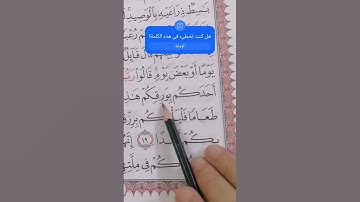 هل كنت تخطيء في هذه الكلمة؟
الإجابة
بَٰسِطٌ ذِرَاعَيْهِ بِٱلْوَصِيدِ
قَالَ قَآئِلٌ
يَوْمًا أَوْ بَعْضَ يَوْمٍ قَالُوا۟
أَحَدَكُم بِوَرِقِكُمْ هَٰذِ
طَعَامًا فَلْيَأْ كُم بِرِزْ
بِكُمْ دًا ١٩ إِنَّهُ
كُمْ فِى مِلَّتِهِ